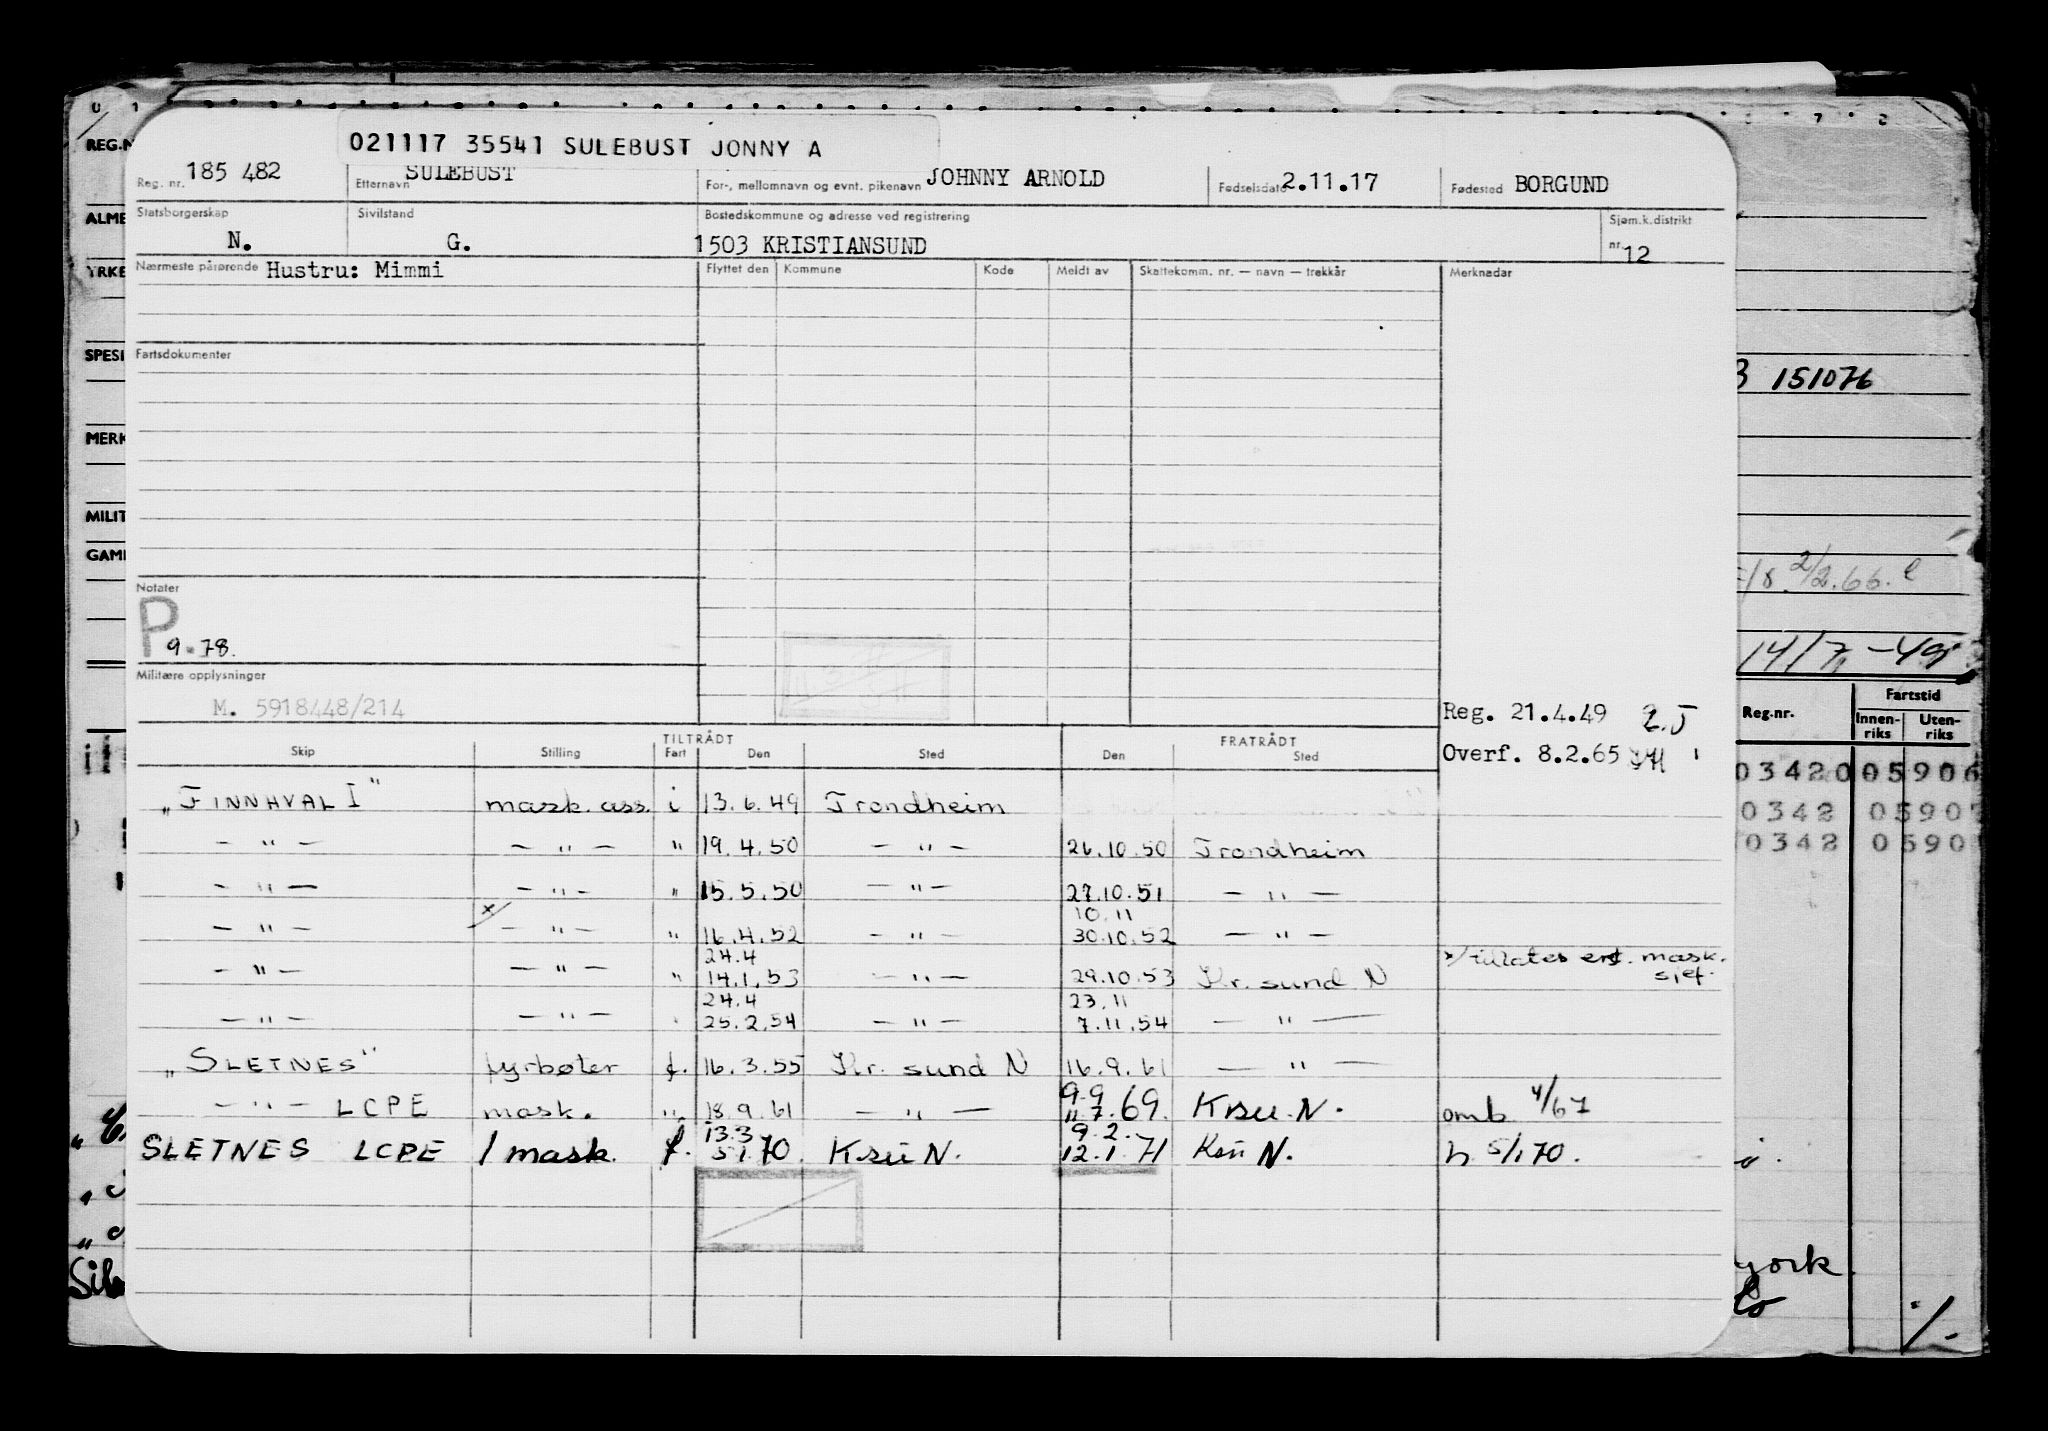 0 1
7 8
REG.N
021117 35541 SULEBUST JONNY A
Reg. nr. 185 482 Etternavn SULEBUST For-, mellomnavn og evnt. pikenavn JOHNNY ARNOLD Fødselsdato 2.11.17 Fødested BORGUND
ALME
Statsborgerskap Sivilstand Bostedskommune og adresse ved registrering Sjøm.k.distrikt
N. G. 1503 KRISTIANSUND nr. 12
YRKE
Nærmeste pårørende Hustru: Mimmi Flyttet den Kommune Kode Meldt av Skattekomm. nr. — navn — trekkår Merknader
SPESI
Fartsdokumenter
3 151076
MERK
MILIT
GAM
2/2.66.
Notater
P 9.78.
14/7,-49
Militære opplysninger
M. 5918448/214
Fartstid
Reg. 21.4.49
Reg.nr. Innen-riks Uten-riks
TILTRÅDT FRATRÅDT
Skip Stilling Fart Den Sted Den Sted
Overf. 8.2.65
03420 05906
"FINNHVAL I" mask. ass. i 13.6.49 Trondheim
0342 0590
— " — — " — " 19.4.50 — " — 26.10.50 Trondheim
0342 0590
— " — — " — " 15.5.50 — " — 27.10.51 — " —
10.11
— " — x/ — " — " 16.4.52 — " — 30.10.52 — " —
24.4 x/ tillates erst. mask.
— " — — " — " 14.1.53 — " — 29.10.53 Kr. sund N sjef.
24.4 23.11
— " — — " — 25.2.54 — " — 7.11.54 — " —
"SLETNES" fyrbøter f. 16.3.55 Kr. sund N 16.9.61 — " —
9.9
— " — LCPE mask. " 18.9.61 — " — 11.7.69. Ksu. N. omb 4/67
13.3 9.2.
SLETNES LCPE 1 mask. f. 5.1.70. Ksu N. 12.1.71 Ksu N. h 5/1 70.
york
Sib